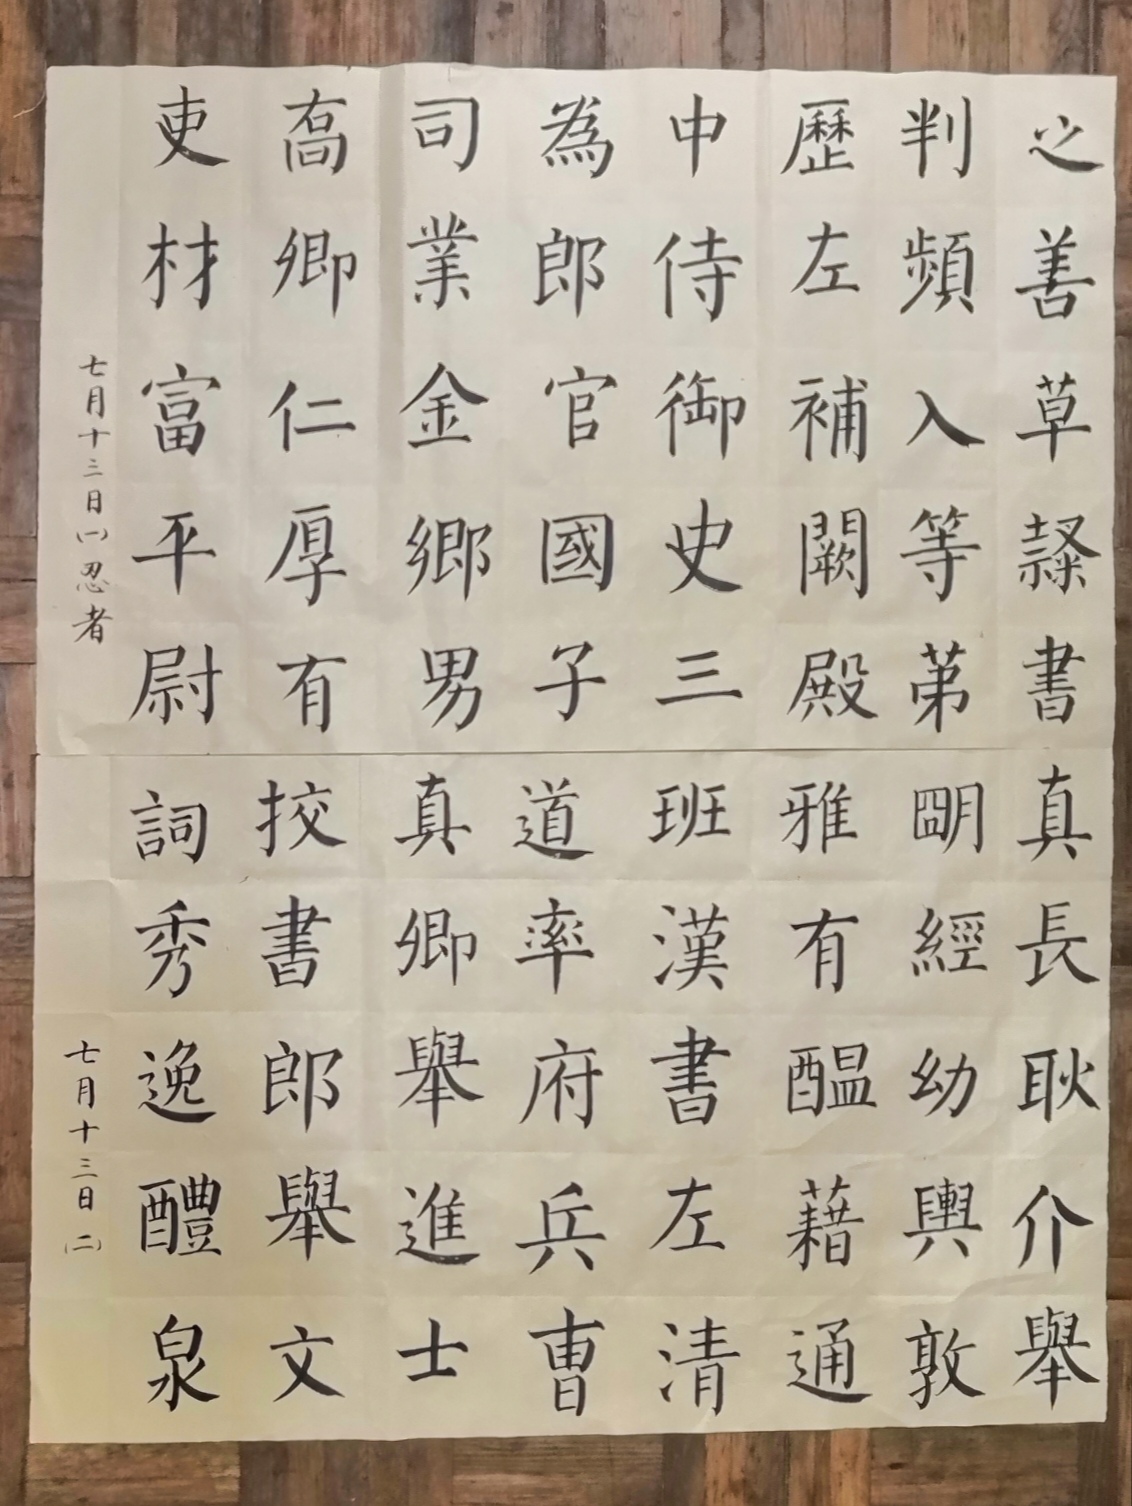 之善草隸書
判頻入等苐
歷左補闕殿
中侍御史三
為郎官國子
司業金鄉男
髙卿仁厚有
吏材富平尉
七月十三日(一)忍者
真長耿介舉
朙經幼輿敦
雅有醞藉通
班漢書左清
道率府兵曹
真卿舉進士
挍書郎舉文
詞秀逸醴泉
七月十三日(二)